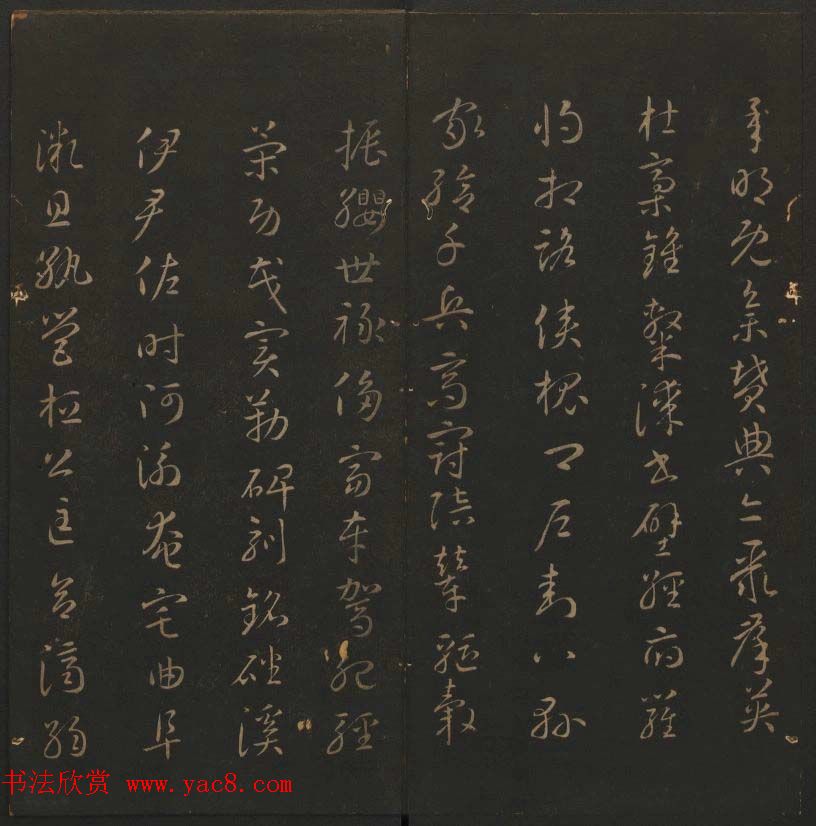 承明既集墳典亦聚群英
杜稾鍾隸漆書壁經府羅
將相路俠槐卿戶封八縣
家給千兵高冠陪輦驅轂
振纓世祿侈富車駕肥輕
策功茂實勒碑刻銘磻溪
伊尹佐時阿衡奄宅曲阜
微旦孰營桓公匡合濟弱
书法欣赏 www.yac8.com